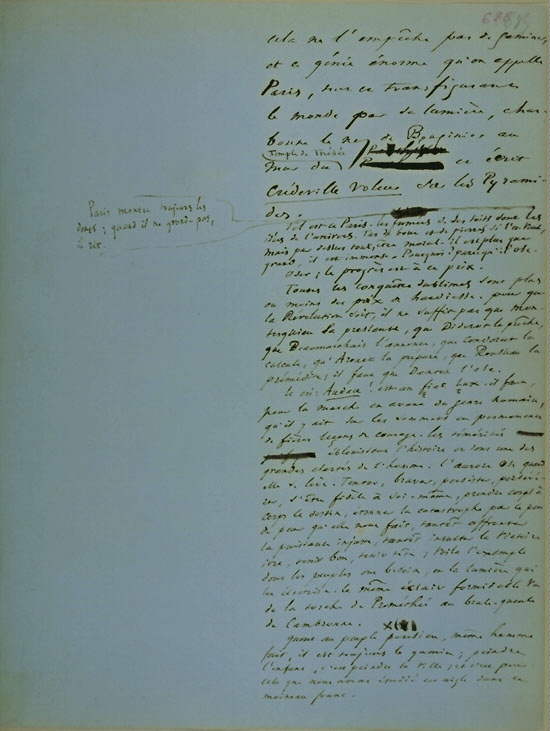 cela ne l'empêche pas de gaminer,
et ce génie énorme qu'on appelle
Paris, tout en transfigurant
le monde par sa lumière, char-
bonne le nez de Bouginier au
temple de Thésée
mur du et écrit
Crédeville voleur sur les Pyrami-
des.
Paris montre toujours les
dents ; quand il ne gronde pas,
il rit.
Tel est ce Paris. les fumées de ses toits sont les
idées de l'univers. Tas de boue et de pierres si l'on veut,
mais par dessus tout, être moral. il est plus que
grand, il est immense. Pourquoi ? parce qu'il ose.
Oser ; le progrès est à ce prix.
Toutes les conquêtes sublimes sont plus
ou moins des prix de hardiesse. pour que
la Révolution soit, il ne suffit pas que Mon-
tesquieu la pressente, que Diderot la prêche,
que Beaumarchais l'annonce, que Condorcet la
calcule, qu'Arouet la prépare, que Rousseau la
prémédite ; il faut que Danton l'ose.
le cri : Audace ! est un fiat lux. il faut,
pour la marche en avant du genre humain,
qu'il y ait sur les sommets en permanence
de fières leçons de courage. les témérités
éblouissent l'histoire et sont une des
grandes clartés de l'homme. l'aurore ose quand
elle se lève. Tenter, braver, persister, persévé-
rer, s'être fidèle à soi-même, prendre corps à
corps le destin, étonner la catastrophe par le peu
de peur qu'elle nous fait, tantôt affronter
la puissance injuste, tantôt insulter la victoire
ivre, tenir bon, tenir tête ; voilà l'exemple
dont les peuples ont besoin, et la lumière qui
les électrise. le même éclair formidable va
de la torche de Prométhée au brûle-gueule
de Cambronne.
Quant au peuple parisien, même homme
fait, il est toujours le gamin ; peindre
l'enfant, c'est peindre la ville ; et c'est pour
cela que nous avons étudié cet aigle dans ce
moineau franc.